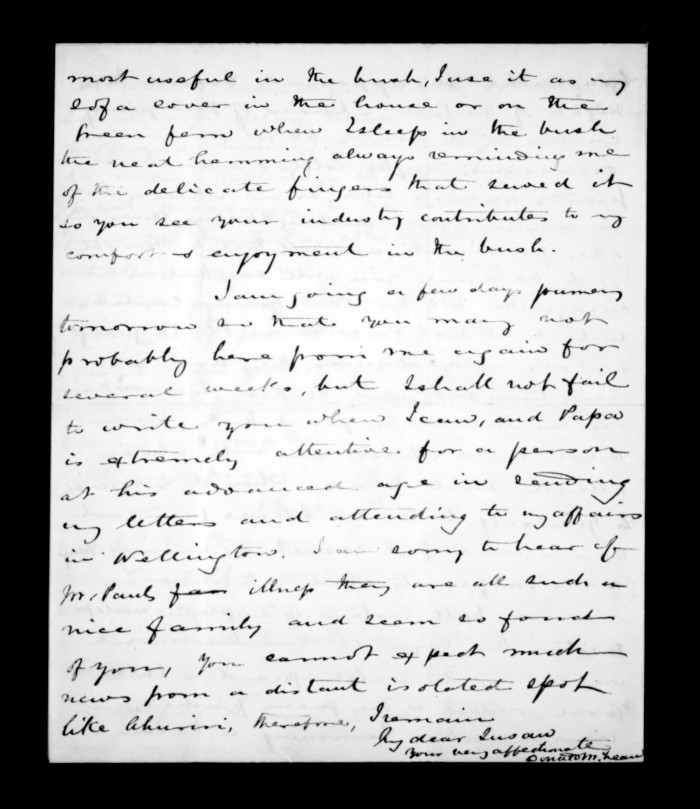 most useful in the bush, I use it as my
sofa cover in the house or on the
green fern when I sleep in the bush
the neat hemming always reminding me
of the delicate fingers that sewed it
so you see your industry contributes to my
comfort & enjoyment in the bush.
I am going a few days journey
tomorrow so that you may not
probably here from me again for
several weeks, but I shall not fail
to write you when I can, and Papa
is extremely attentive for a person
at his advanced age in sending
my letters and attending to my affairs
in Wellington. I am sorry to hear of
Mr. Pauls illness they are all such a
nice family and seem so fond
of you, you cannot expect much
news from a distant isolated spot
like Ahuriri, therefore, I remain
My dear Susan
Your very affectionate
Donald McLean